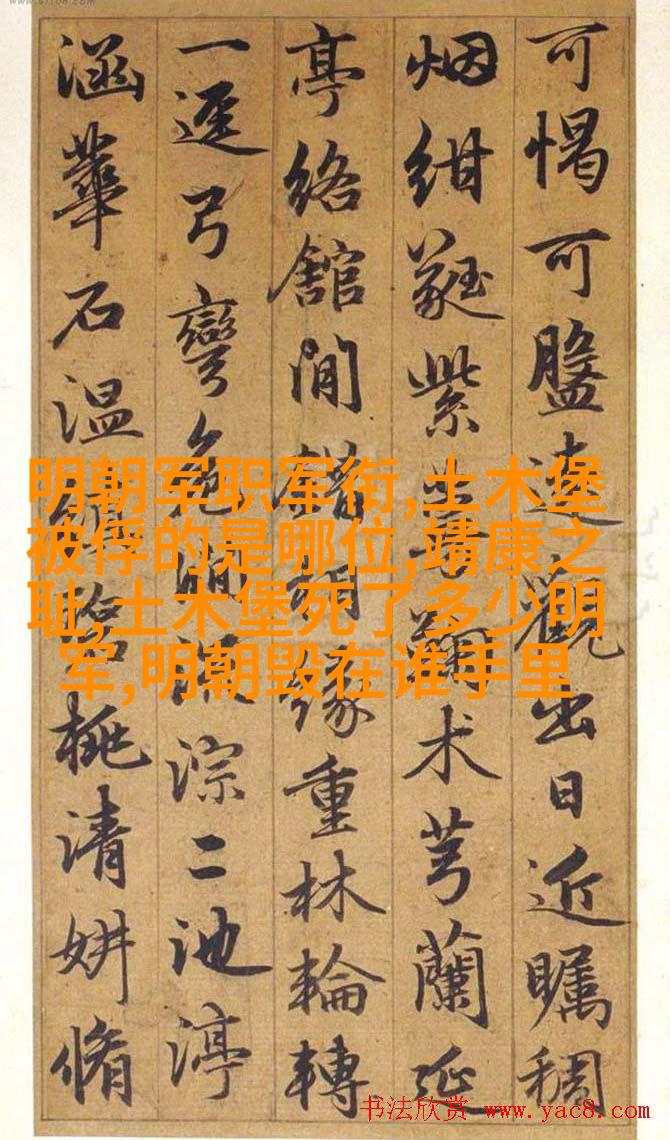 可愒可盤遠觀出日近矚稠
烟紺蕤紫术芎蘭延
亭絡舘間錯緣重林輪轉
一逕弓彎淙二池渟
涵華石温桃清妍脩
明朝军职军衔,土木堡
被俘的是哪位,靖康之
耻,土木堡死了多少明
军,明朝毁在谁手里
书法欣赏 www.yac8.com